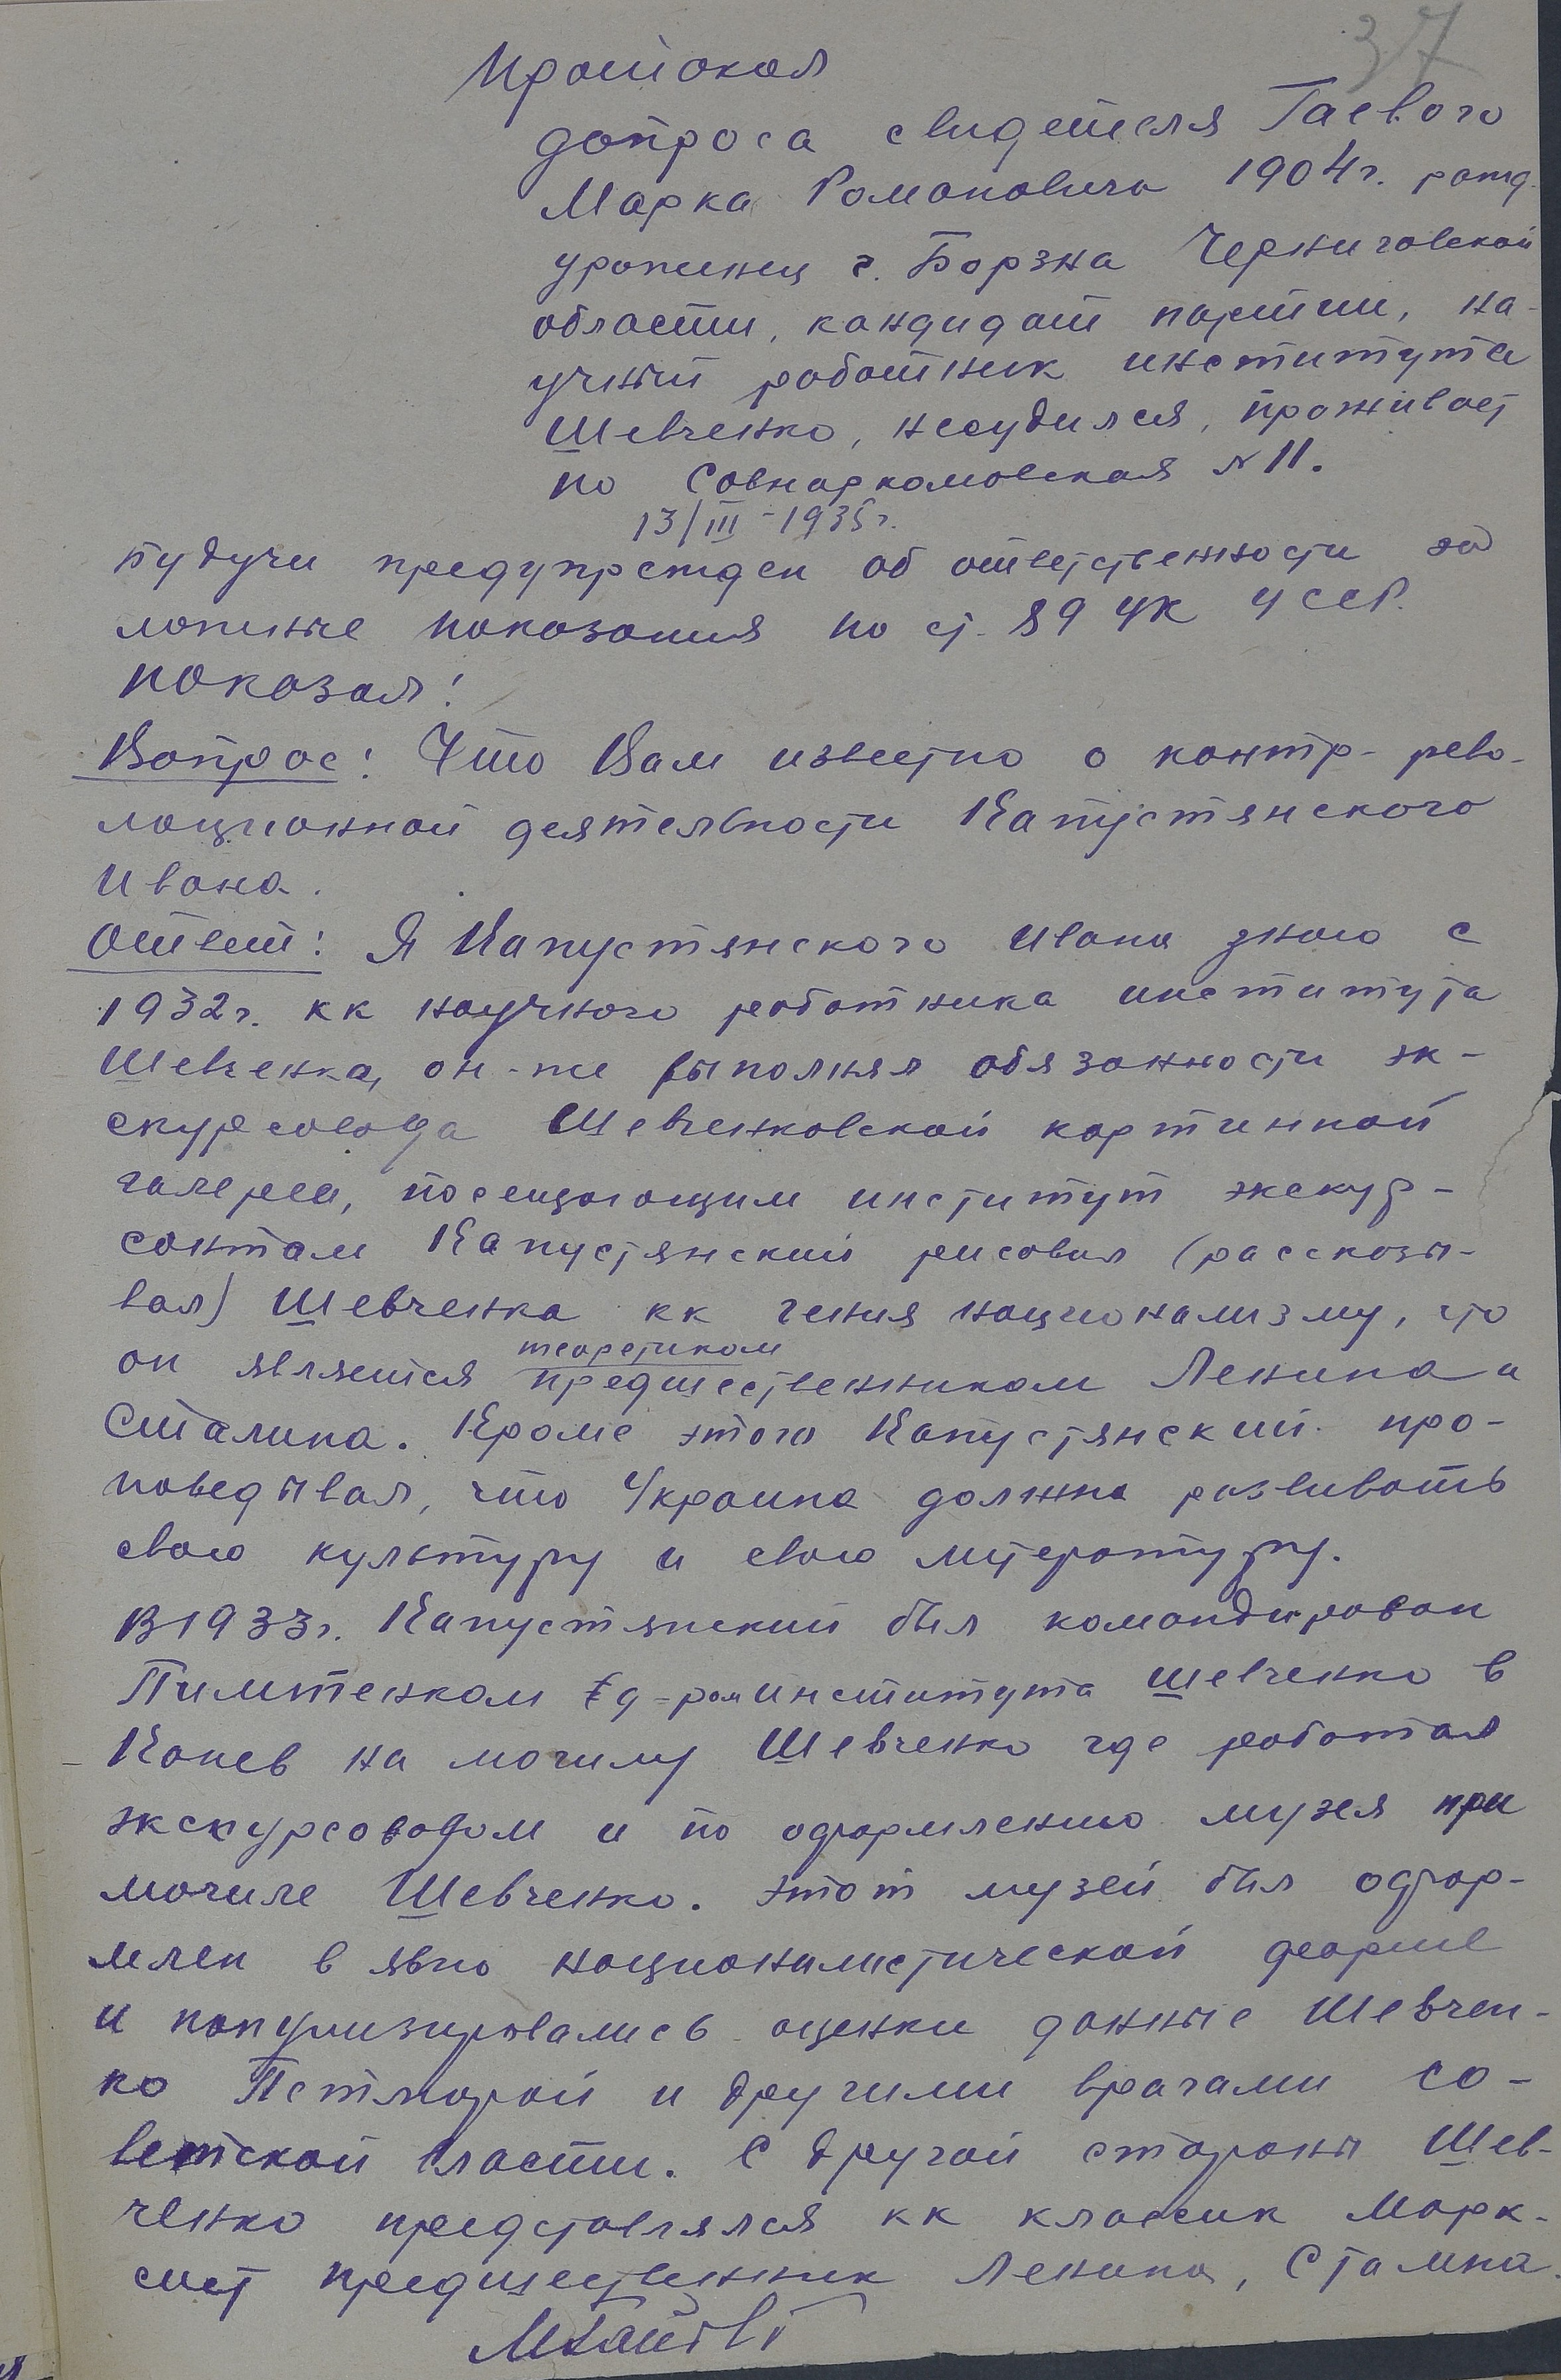 37
Протокол
допроса свидетеля Гаевого
Марка Романовича 1904 г. рожд.
уроженец г. Борзна Черниговской
области, кандидат партии, на-
учный работник института
Шевченко, несудился, проживает
по Совнаркомовская N 11.
13/III - 1935 г.
будучи предупрежден об ответственности за
ложные показания по ст. 89 УК УССР.
показал:
Вопрос: Что Вам известно о контр-рево-
люционной деятельности Капустянского
Ивана.
Ответ: Я Капустянского Ивана знаю с
1932 г. кк научного работника института
Шевченка, он-же выполнял обязанности эк-
скурсовода Шевченковской картинной
галереи, посещающим институт экскур-
сантам Капустянский рисовал (рассказы-
вал) Шевченка кк гения национализму, что
теоретиком
он является предшественником Ленина и
Сталина. Кроме этого Капустянский про-
поведывал, что Украина должна развивать
свою культуру и свою литературу.
В 1933 г. Капустянский был командирован
Пилипенком д-ром института Шевченко в
Канев на могилу Шевченко где работал
экскурсоводом и по оформлению музея при
могиле Шевченко. Этот музей был офор-
млен в явно националистической форме
и популизировались оценки данные Шевчен-
ко Петлюрой и другими врагами со-
ветской власти. С другой стороны Шев-
ченко представлялся кк классик Марк-
сист предшественник Ленина, Сталина.